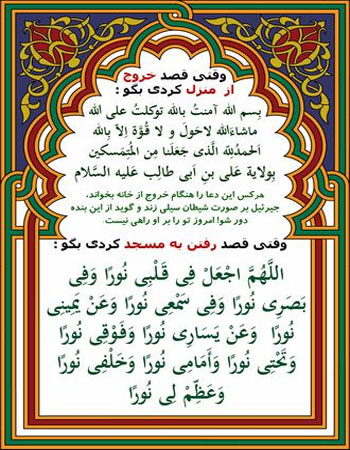 وقتی قصد خروج
از منزل کردی بگو :
بِسمِ الله آمنتُ بالله توکلتُ علی الله
ماشاءَالله لاحَولَ و لا قُوَّةَ اِلاّ بِالله
اَلحمدُلِلّه الَّذی جَعَلَنا مِنَ المُتِمَسکین
بِولایَة عَلی بنِ اَبی طالِب عَلیه السَّلام
هرکس این دعا را هنگام خروج از خانه بخواند،
جبرئیل بر صورت شیطان سیلی زند و گوید از این بنده
دور شو! امروز تو را بر او راهی نیست.
وقتی قصد رفتن به مسجد کردی بگو :
اَللّهُمَّ اجْعَلْ فِی قَلْبِی نُورًا وَفِی
بَصَرِی نُورًا وَفِی سَمْعِی نُورًا وَعَنْ یَمِینِی
نُورًا وَعَنْ یَسَارِی نُورًا وَفَوْقِی نُورًا
وَتَحْتِی نُورًا وَأَمَامِی نُورًا وَخَلْفِی نُورًا
وَعَظِّمْ لِی نُورًا